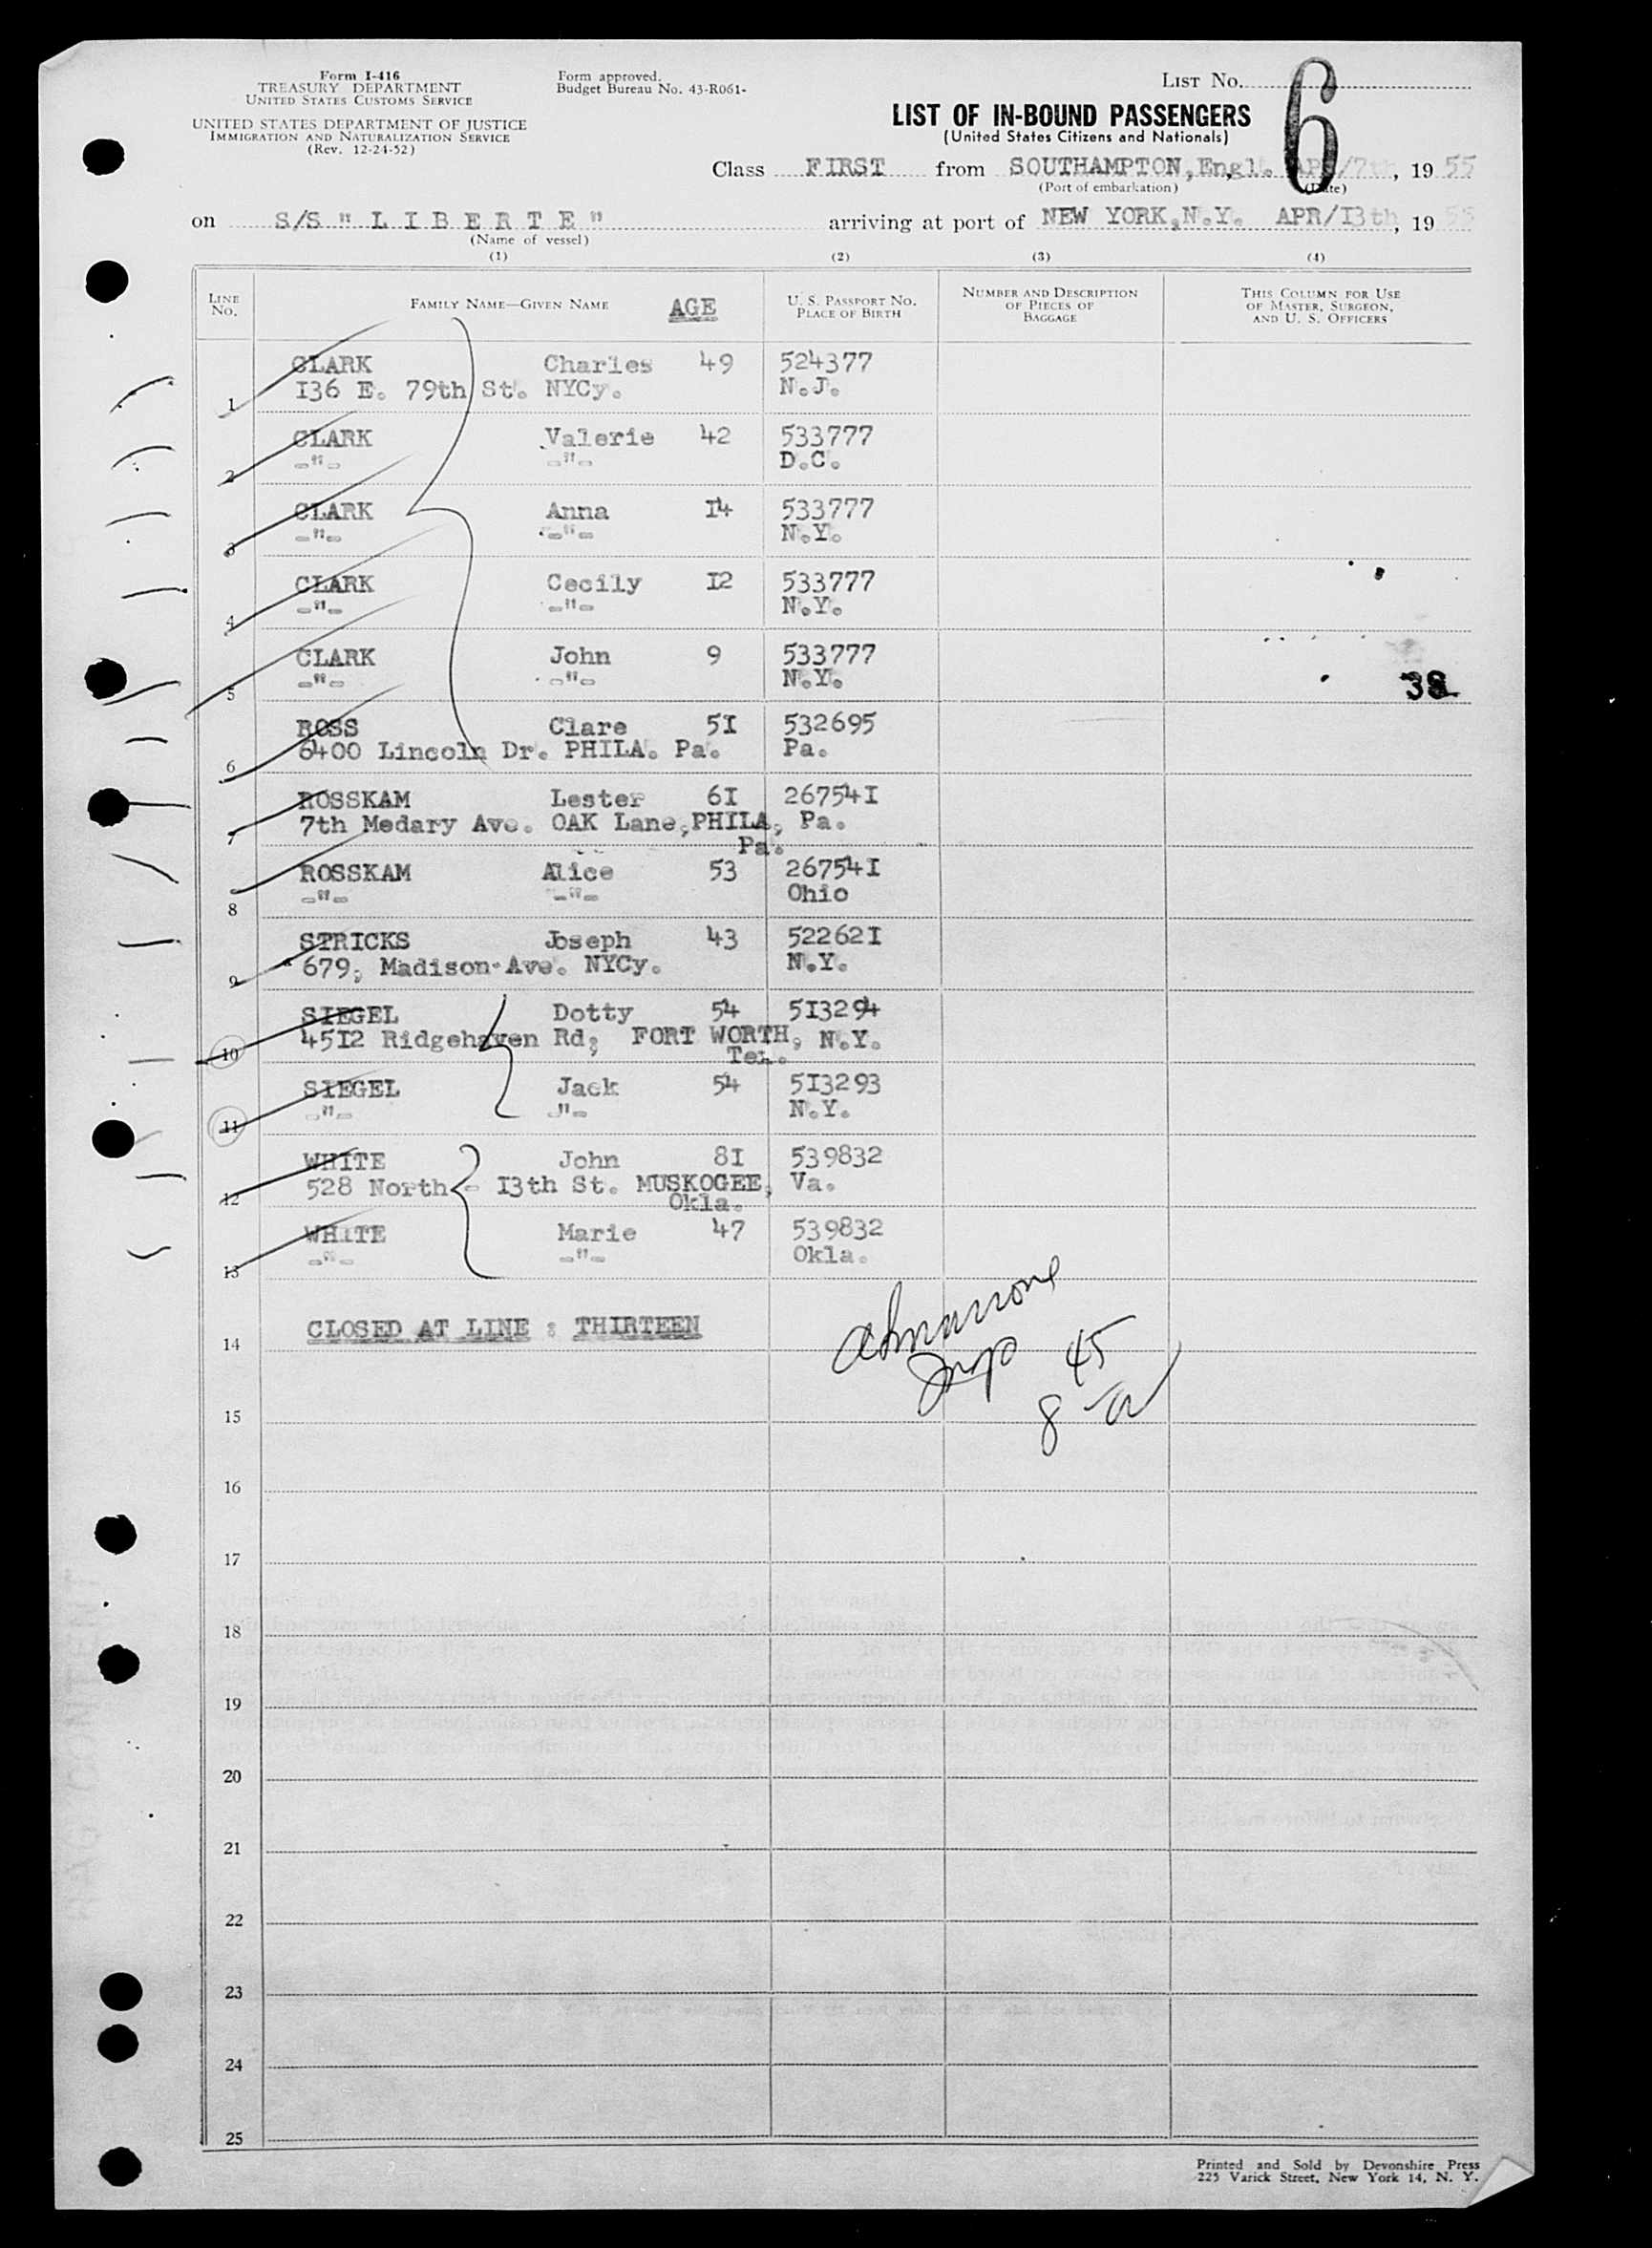 Form I-416
TREASURY DEPARTMENT
UNITED STATES CUSTOMS SERVICE
UNITED STATES DEPARTMENT OF JUSTICE
IMMIGRATION AND NATURALIZATION SERVICE
(Rev. 12-24-52)
Form approved.
Budget Bureau No. 43-R061-
LIST NO. 6
LIST OF IN-BOUND PASSENGERS
(United States Citizens and Nationals)
Class FIRST from SOUTHAMPTON, Engl. APR/7th, 19 55
(Port of embarkation) (Date)
on S/S " L I B E R T E " arriving at port of NEW YORK, N.Y. APR/I3th, 19 55
(Name of vessel)
(1) (2) (3) (4)
LINE NO. FAMILY NAME—GIVEN NAME AGE U. S. PASSPORT NO. PLACE OF BIRTH NUMBER AND DESCRIPTION OF PIECES OF BAGGAGE THIS COLUMN FOR USE OF MASTER, SURGEON, AND U. S. OFFICERS
CLARK Charles 49 524377
1 I36 E. 79th St. NYCy. N.J.
CLARK Valerie 42 533777
2 -"- -"- D.C.
CLARK Anna I4 533777
3 -"- -"- N.Y.
CLARK Cecily I2 533777
4 -"- -"- N.Y.
CLARK John 9 533777
5 -"- -"- N.Y. 38
ROSS Clare 5I 532695
6 6400 Lincoln Dr. PHILA. Pa. Pa.
ROSSKAM Lester 6I 26754I
7 7th Medary Ave. OAK Lane, PHILA, Pa.
Pa.
ROSSKAM Alice 53 26754I
8 -"- -"- Ohio
STRICKS Joseph 43 52262I
9 679, Madison-Ave. NYCy. N.Y.
SIEGEL Dotty 54 5I3294
10 45I2 Ridgehaven Rd; FORT WORTH, N.Y.
Tex.
SIEGEL Jack 54 5I3293
11 -"- -"- N.Y.
WHITE John 8I 539832
12 528 North - I3th St. MUSKOGEE, Va.
Okla.
WHITE Marie 47 539832
13 -"- -"- Okla.
14 CLOSED AT LINE : THIRTEEN
45
15
16
17
18
19
20
21
22
23
24
25
Printed and Sold by Devonshire Press
225 Varick Street, New York 14, N. Y.